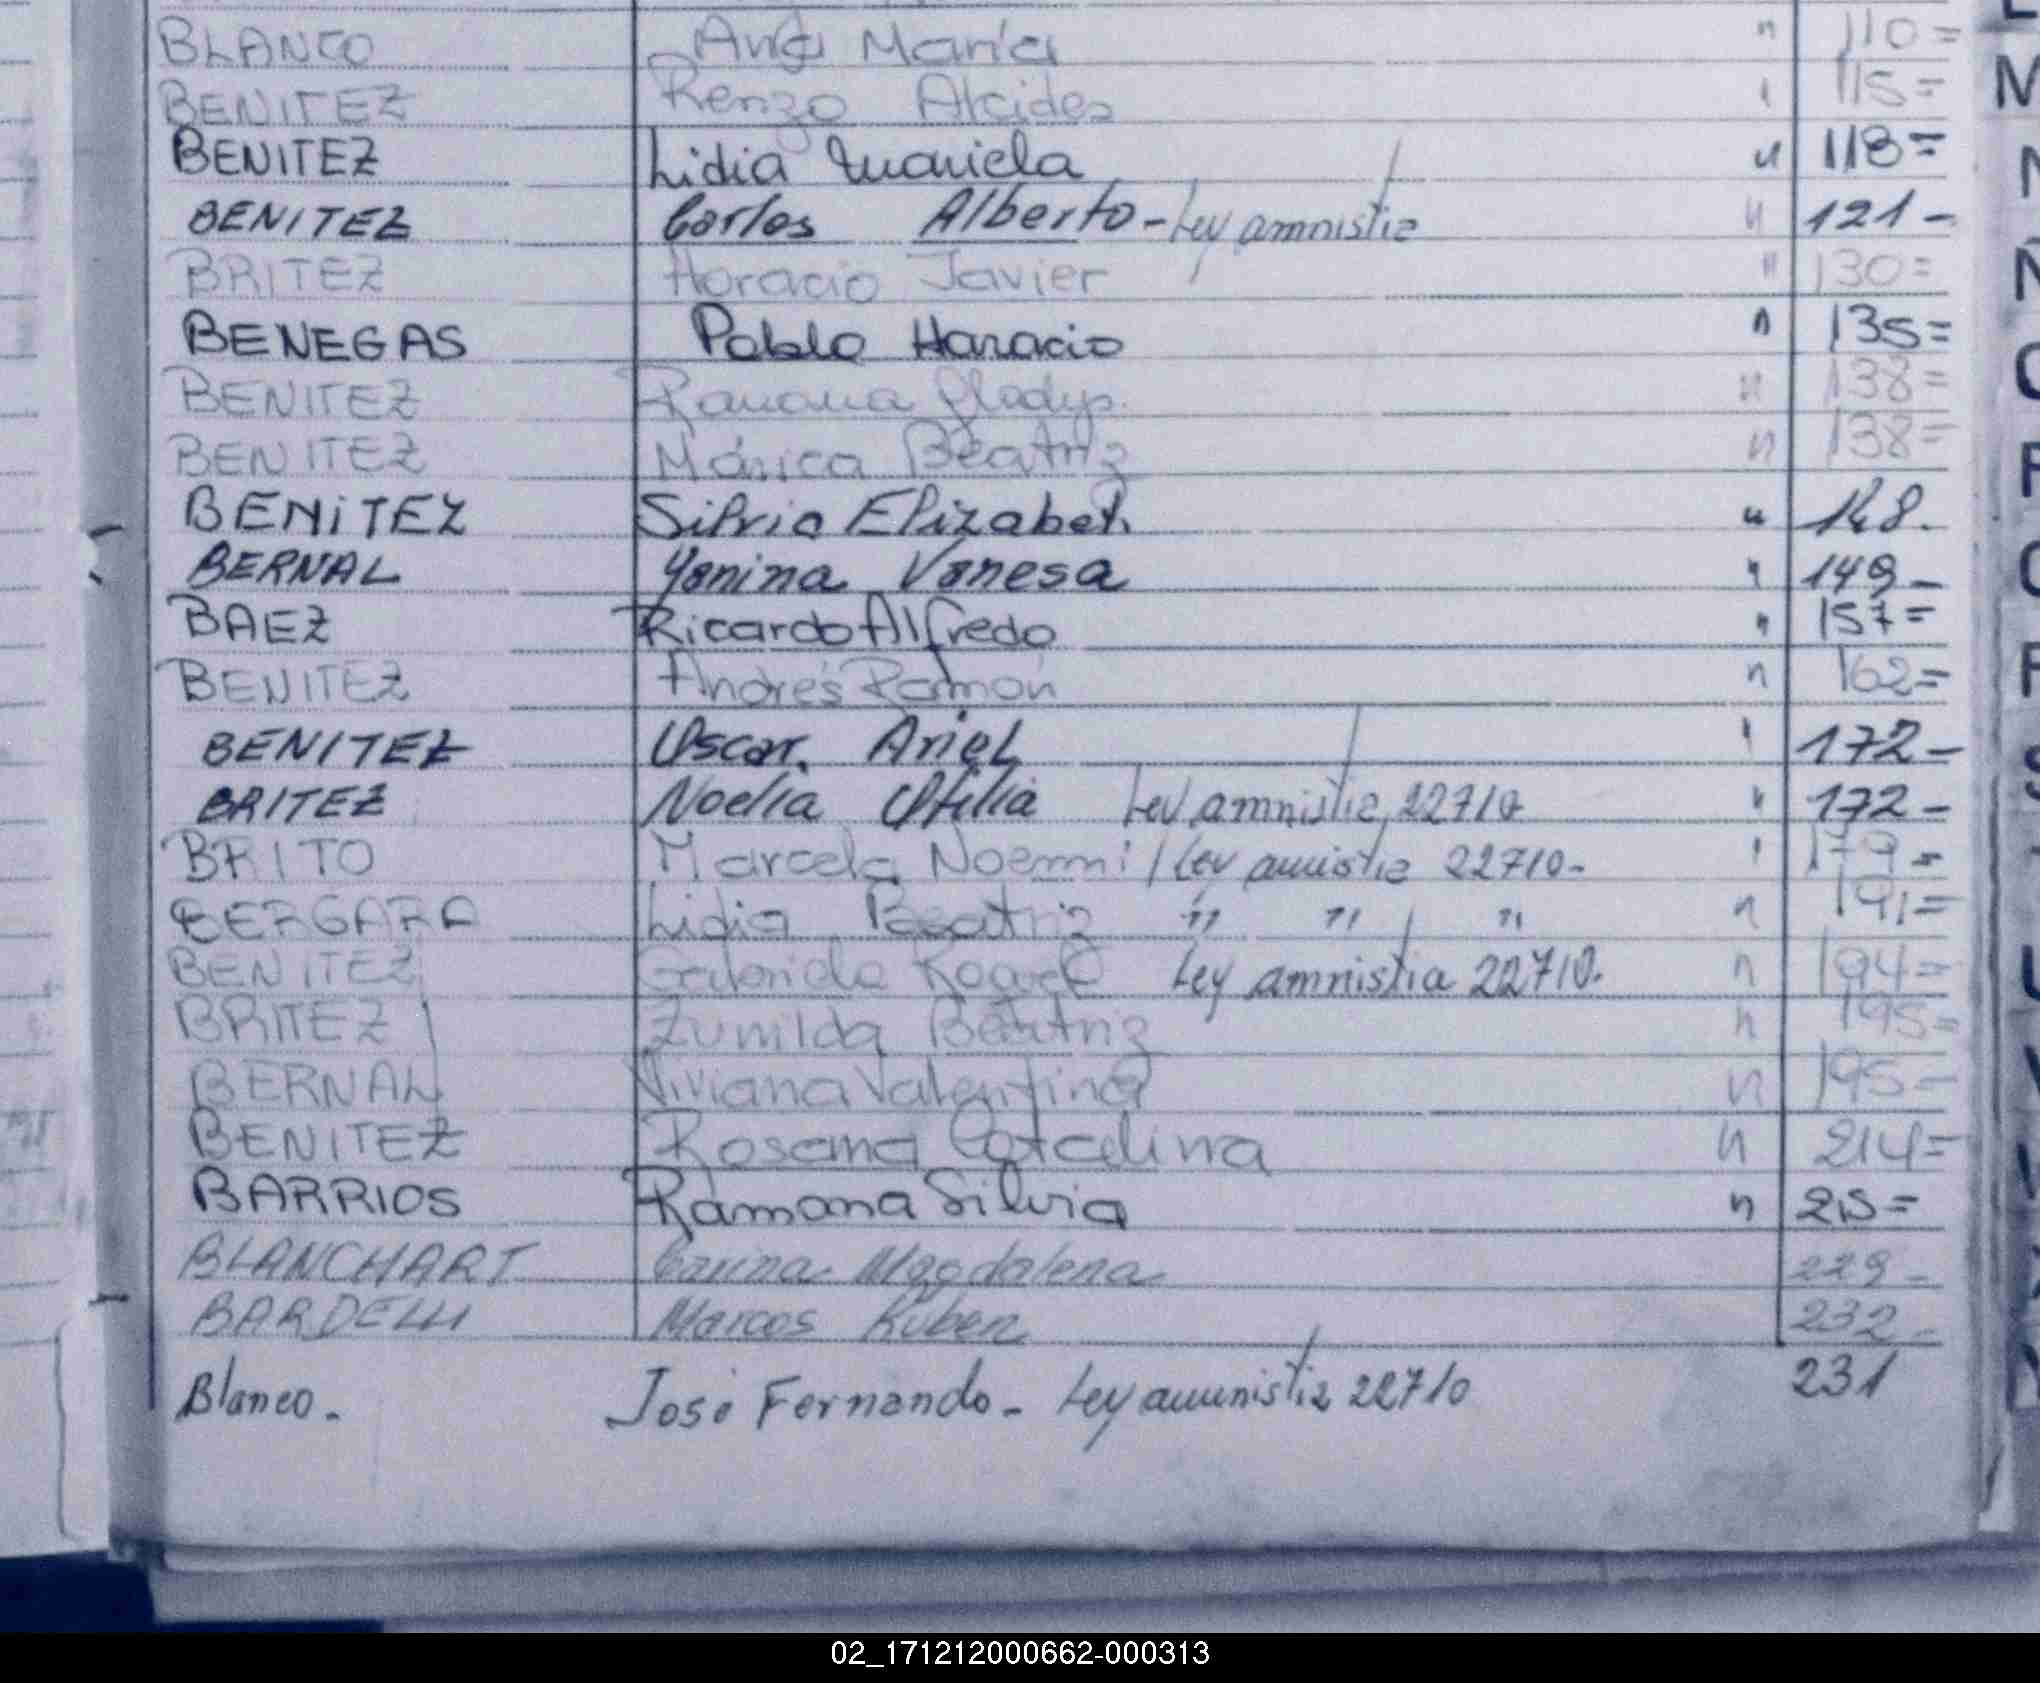 BLANCO Ana María " 110=
BENITEZ Renzo Alcides " 115=
BENITEZ Lidia Mariela " 118=
BENITEZ Carlos Alberto - Ley amnistia " 121-
BRITEZ Horacio Javier " 130=
BENEGAS Pablo Horacio " 135=
BENITEZ Ramona Gladys. " 138=
BENITEZ Mónica Beatriz " 138=
BENITEZ Silvia Elizabet. " 148.
BERNAL Yanina Vanesa " 149-
BAEZ Ricardo Alfredo " 157=
BENITEZ Andrés Ramón " 162=
BENITEZ Oscar Ariel " 172-
BRITEZ Noelia Otilia Ley amnistia 22710 " 172-
BRITO Marcela Noemi / Ley amnistia 22710- " 179=
BERGARA Lidia Beatriz " " " " 191=
BENITEZ Gabriela Raquel Ley amnistia 22710. " 194=
BRITEZ Zunilda Beatriz " 195=
BERNAL Viviana Valentina " 195=
BENITEZ Rosana Catalina " 214=
BARRIOS Ramona Silvia " 215=
BLANCHART Carina Magdalena 229-
BARDELLI Marcos Ruben 232-
Blanco. José Fernando - Ley amnistia 22710 231
02_171212000662-000313